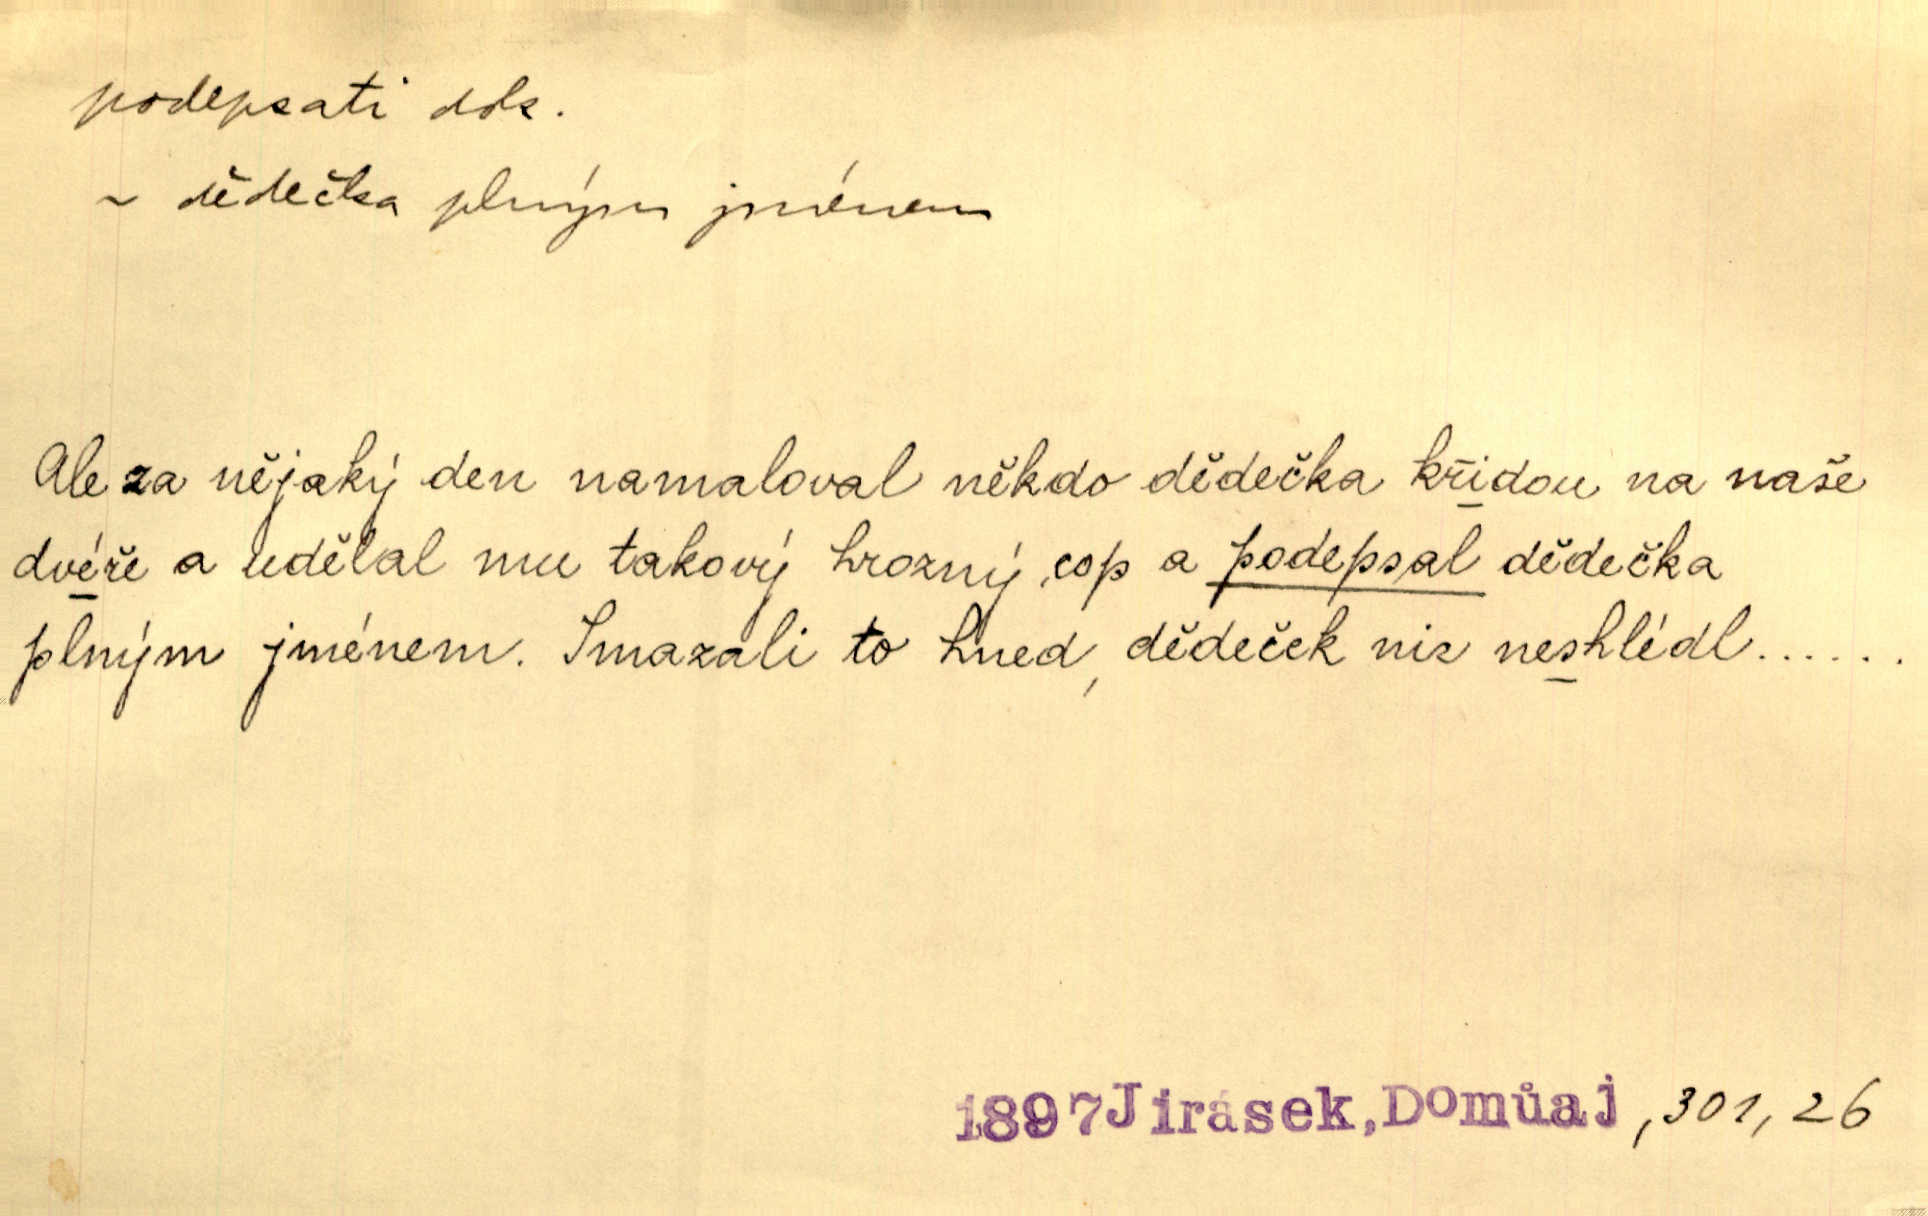 podepsati dok.
~ dědečka plným jménem
Ale za nějaký den namaloval někdo dědečka křidou na naše
dvéře a udělal mu takový hrozný cop a podepsal dědečka
plným jménem. Smazali to hned, dědeček nic neshlédl......
1897 Jirásek, Domůaj, 301, 26